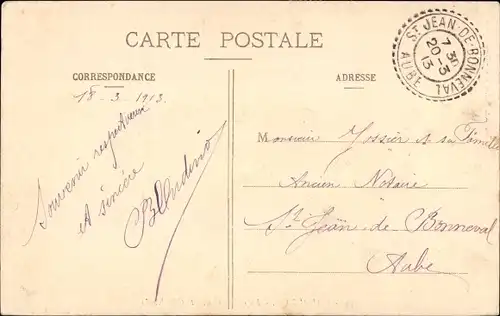 CARTE POSTALE
CORRESPONDANCE
ADRESSE
ST JEAN-DE-BONNEVAL
7 30
20-3
13
AUBE
18-3-1913.
Souvenir respectueux
et sincère
Monsieur et sa Famille
Ancien Notaire
St. Jean de Bonneval
Aube